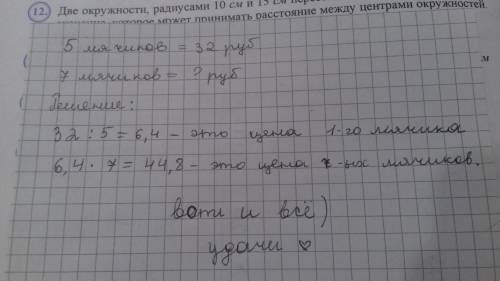 12. Две окружности, радиусами 10 см и 15 см
которое может принимать расстояние между центрами окружностей.
м
5 мячиков = 32 руб
7 мячиков = ? руб
Решение:
32 : 5 = 6,4 - это цена 1-го мячика
6,4 · 7 = 44,8 - это цена 7-ых мячиков.
вот и всё)
удачи ♡